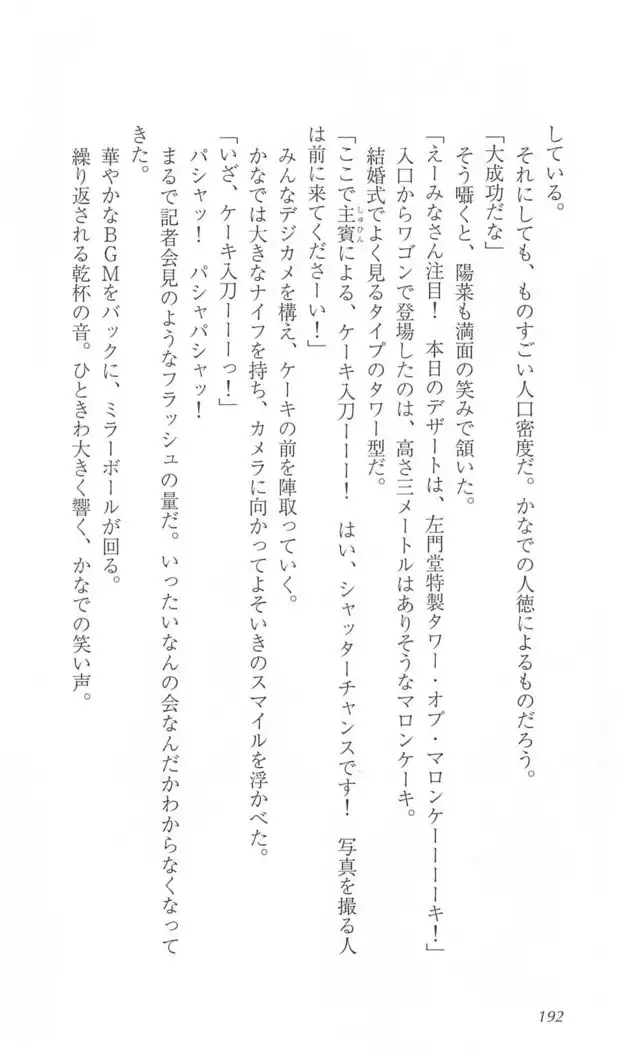 している。
　それにしても、ものすごい人口密度だ。かなでの人徳によるものだろう。
「大成功だな」
　そう囁くと、陽菜も満面の笑みで頷いた。
「えーみなさん注目！　本日のデザートは、左門堂特製タワー・オブ・マロンケーーーーキ！」
　入口からワゴンで登場したのは、高さ三メートルはありそうなマロンケーキ。
　結婚式でよく見るタイプのタワー型だ。
「ここで主賓による、ケーキ入刀ーーー！　はい、シャッターチャンスです！　写真を撮る人
しゅひん
は前に来てくださーい！」
　みんなデジカメを構え、ケーキの前を陣取っていく。
　かなでは大きなナイフを持ち、カメラに向かってよそいきのスマイルを浮かべた。
「いざ、ケーキ入刀ーーーっ！」
　パシャッ！　パシャパシャッ！
　まるで記者会見のようなフラッシュの量だ。いったいなんの会なんだかわからなくなって
きた。
　華やかなＢＧＭをバックに、ミラーボールが回る。
　繰り返される乾杯の音。ひときわ大きく響く、かなでの笑い声。
192